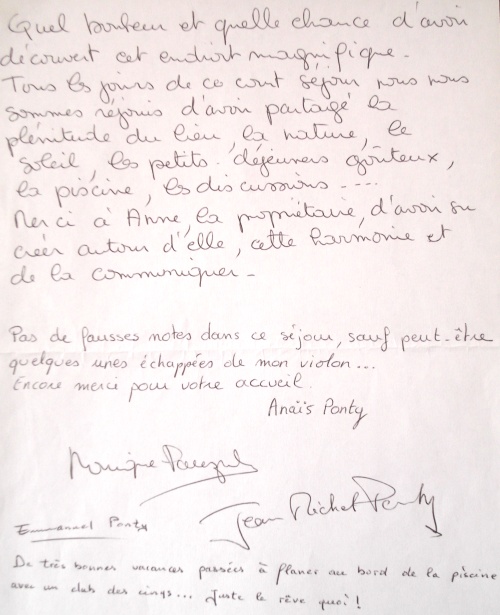 Quel bonheur et quelle chance d'avoir
découvert cet endroit magnifique.
Tous les jours de ce court séjour nous nous
sommes réjouis d'avoir partagé la
plénitude du lieu, la nature, le
soleil, les petits déjeuners goûteux,
la piscine, les discussions ----
Merci à Anne, la propriétaire, d'avoir su
créer autour d'elle, cette harmonie et
de la communiquer -
Pas de fausses notes dans ce séjour, sauf peut-être
quelques unes échappées de mon violon...
Encore merci pour votre accueil.
Anaïs Ponty
Monique
Jean Michel Ponty
Emmanuel Ponty
De très bonnes vacances passées à planer au bord de la piscine
avec un club des cinqs... Juste le rêve quoi !